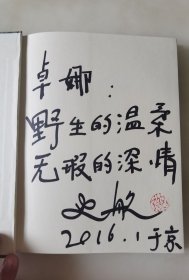 卓娜：
野生的温柔
无瑕的深情
史航
2016.1于京